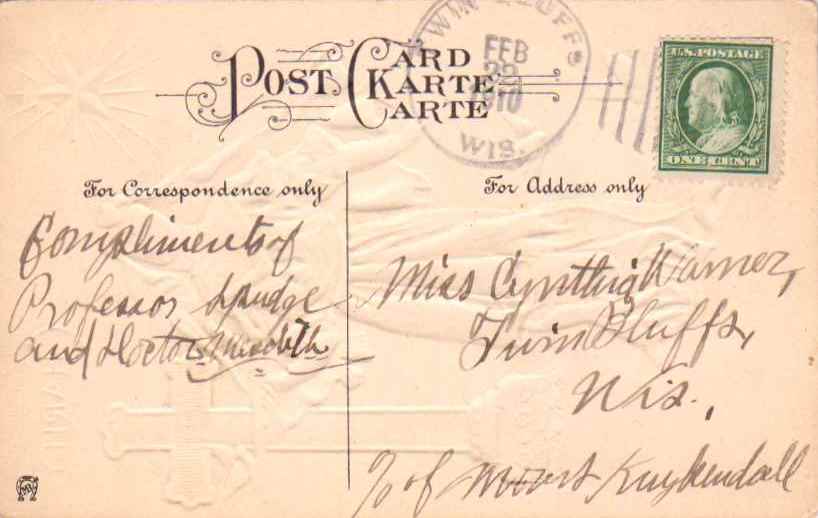 TWIN BLUFFS
FEB
22
1910
WIS.
U.S. POSTAGE
ONE CENT
POST CARD
KARTE
CARTE
For Correspondence only
For Address only
Compliments of
Professor Spudge
and Doctor
Miss Cynthia Warner,
Twin Bluffs,
Wis.,
% of Kuykendall